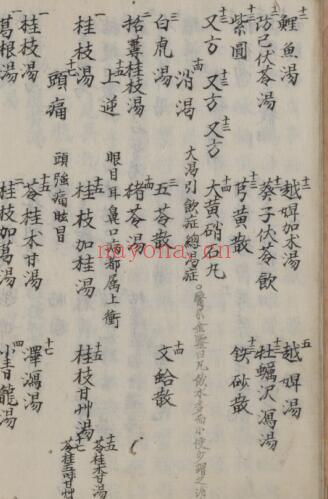 十二 鯉魚湯 越婢加朮湯 五 越婢湯
防己伏苓湯 葵子伏苓飲 牡蠣沢瀉湯
十三 紫圓 芎黄散 鉄砂散
又方 十三 又方 十三 又方 大黄硝石丸
十四 消渇 大渇引飲症總渇症
白虎湯 五苓散 十四 文蛤散
括蔞桂枝湯 猪苓湯
十五 上逆 眼目耳鼻口病都属上衝
桂枝湯 桂枝加桂湯 十五 桂枝甘艸湯 十五 苓桂朮甘湯
十七 頭痛 頭強痛眩冒
一 桂枝湯 十五 苓桂朮甘湯 十七 澤瀉湯
一 葛根湯 桂枝加葛湯 四 小青龍湯
nayona.cn